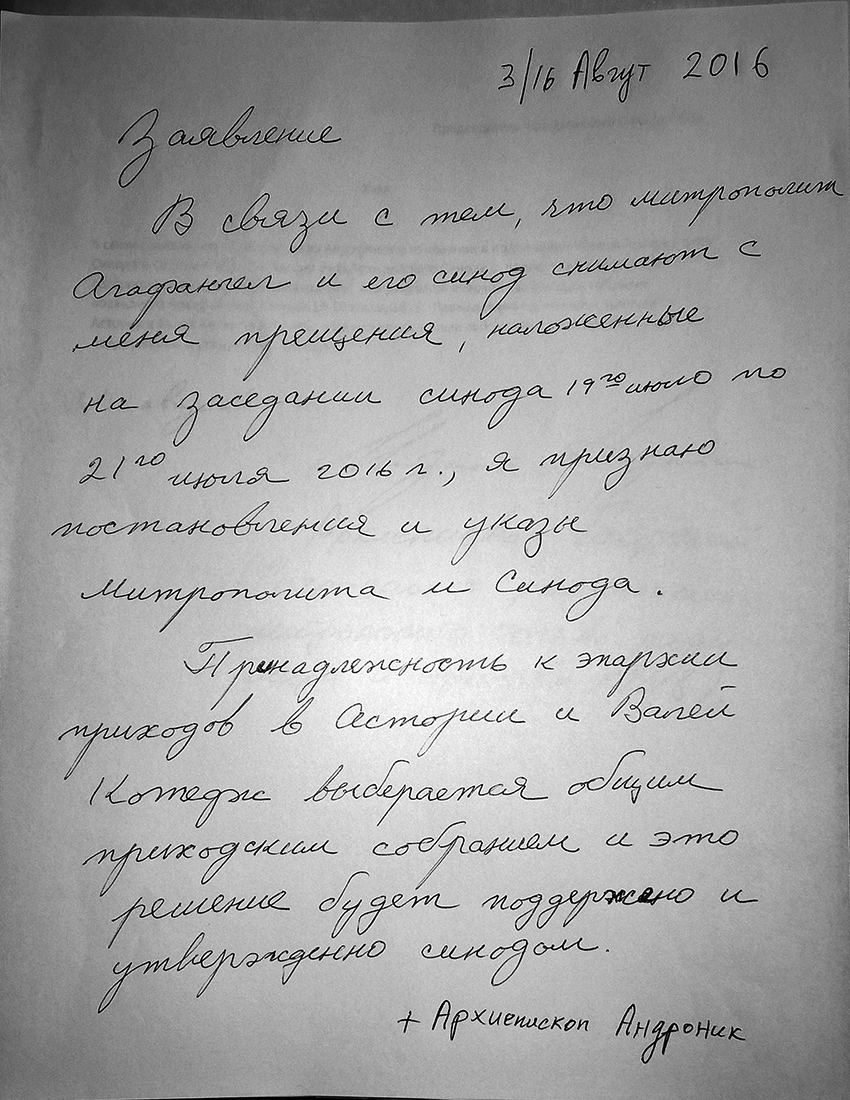 3/16 Авгут 2016
Заявление
В связи с тем, что митрополит
Агафангел и его синод снимают с
меня прещения, наложенные
на заседании синода 19го июло по
21го июля 2016 г., я признаю
постановления и указы
Митрополита и Синода.
Принадлежность к епархии
приходов в Астории и Валей
Котедж выберается общим
приходским собранием и это
решение будет поддержено и
утвержденно синодом.
+ Архиепископ Андроник